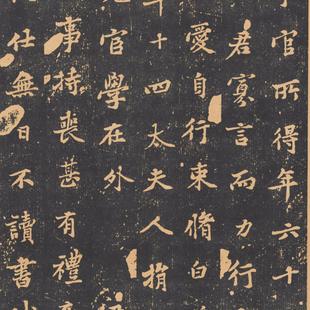 官所得年六十
君寡言而力行
愛自行束脩白
十四太夫人捐
官學在外
事持喪甚有禮
仕無日不讀書